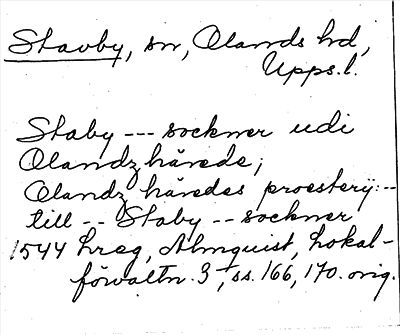 Stavby, sn, Olands hd,
Upps.l.
Staby --- sockner udi
Olandz härede;
Olandz häredes proesterij:--
till -- Staby -- sockner
1544 hreg, Almquist, Lokal-
förvaltn. 3, ss. 166, 170. orig.